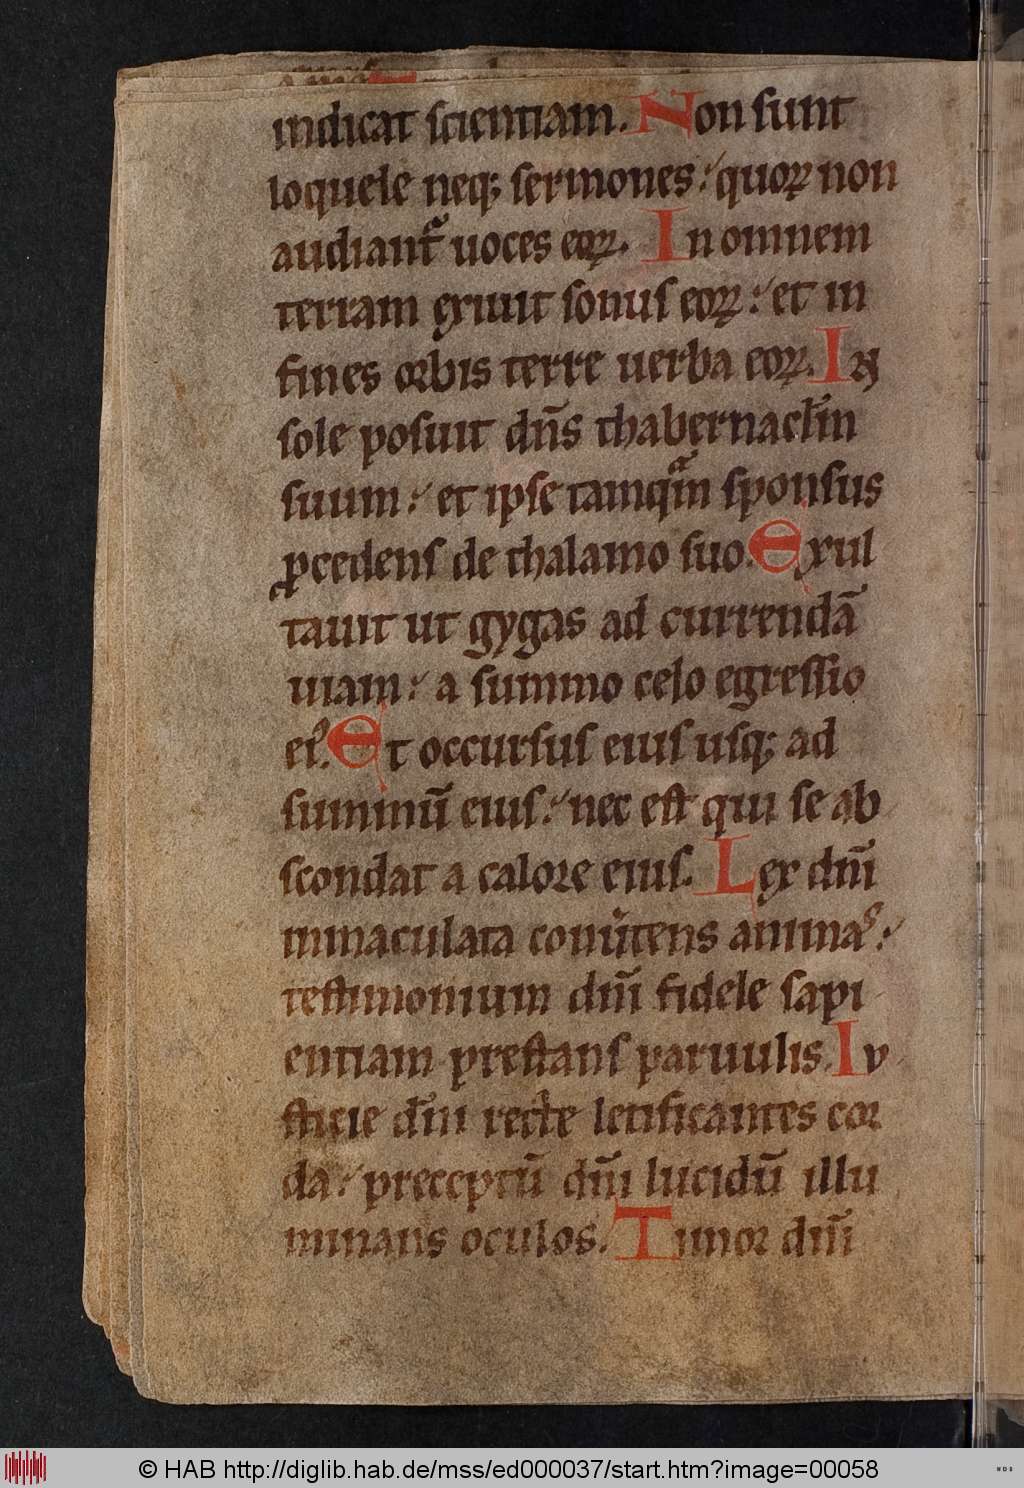 indicat scientiam. Non sunt
loquele neq; sermones : quoꝝ non
audiantᷓ uoces eoꝝ. In omnem
terram exiuit sonus eoꝝ : et in
fines orbis terre uerba eoꝝ. In
sole posuit dn̄s thabernacl̄m
suum : et ipse tamqᷓm sponsus
ꝓcedens de thalamo suo. Exul
tauit ut gygas ad currendā
uiam : a summo celo egressio
ei᾽. Et occursus eius usq; ad
summū eius : nec est qui se ab
scondat a calore eius. Lex dn̄i
inmaculata conu̾tens animaˢ :
testimonium dn̄i fidele sapi
entiam prestans paruulis. Iu
sticie dn̄i recte letificantes cor
da : preceptū dn̄i lucidū illu
minans oculos. Timor dn̄i
© HAB http://diglib.hab.de/mss/ed000037/start.htm?image=00058